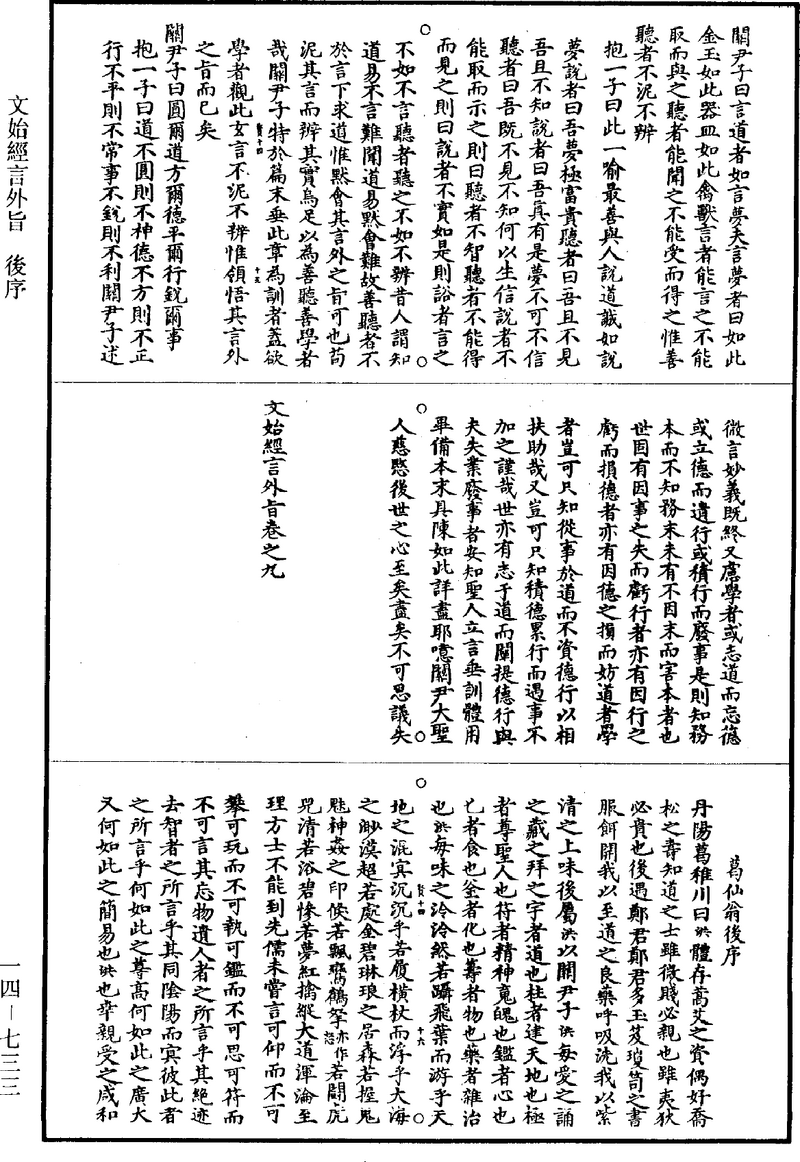 關尹子曰言道者如言夢夫言夢者曰如此
金玉如此器皿如此禽獸言者能言之不能
取而與之聽者能聞之不能受而得之惟善
聽者不泥不辨
抱一子曰此一喻最善與人說道誠如說
夢說者曰吾夢極富貴聽者曰吾且不見
吾且不知說者曰吾真有是夢不可不信
聽者曰吾既不見不知何以生信說者不
能取而示之則曰聽者不智聽者不能得
而見之則曰說者不實如是則說者言之
不如不言聽者聽之不如不辨昔人謂知
道易不言難聞道易默會難故善聽者不
於言下求道惟默會其言外之旨可也苟
泥其言而辨其實烏足以為善聽善學者
哉關尹子特於篇末垂此章為訓者蓋欲
賢十四
十五
學者觀此玄言不泥不辨惟領悟其言外
之旨而已矣
關尹子曰圓爾道方爾德平爾行銳爾事
抱一子曰道不圓則不神德不方則不正
行不平則不常事不銳則不利關尹子述
微言妙義既終又慮學者或志道而忘德
或立德而遺行或積行而廢事是則知務
本而不知務末未有不因末而害本者也
世固有因事之失而虧行者亦有因行之
虧而損德者亦有因德之損而妨道者學
者豈可只知從事於道而不資德行以相
扶助哉又豈可只知積德累行而遇事不
加之謹哉世亦有志于道而闡提德行與
夫失業廢事者安知聖人立言垂訓體用
畢備本末具陳如此詳盡耶噫關尹大聖
人慈愍後世之心至矣盡矣不可思議矣
文始經言外旨卷之九
葛仙翁後序
丹陽葛稚川曰洪體存蒿艾之資偶好喬
松之壽知道之士雖微賤必親也雖夷狄
必貴也後遇鄭君鄭君多玉芨瓊笥之書
服餌開我以至道之良藥呼吸洗我以紫
清之上味後屬洪以關尹子洪每愛之誦
之藏之拜之宇者道也柱者建天地也極
者尊聖人也符者精神魂魄也鑑者心也
匕者食也釜者化也籌者物也藥者雜治
也洪每味之泠泠然若躡飛葉而游乎天
賢十四
十六
地之混冥沉沉乎若履橫杖而浮乎大海
之渺漠超若處金碧琳琅之居森若握鬼
魅神姦之印倏若飄鸞鶴怒亦作拏若鬭虎
兕清若浴碧慘若夢紅擒縱大道渾淪至
理方士不能到先儒未嘗言可仰而不可
攀可玩而不可執可鑑而不可思可符而
不可言其忘物遺人者之所言乎其絕迹
去智者之所言乎其同陰陽而冥彼此者
之所言乎何如此之尊高何如此之廣大
又何如此之簡易也洪也幸親受之咸和
文始經言外旨　後序
一四－七三三